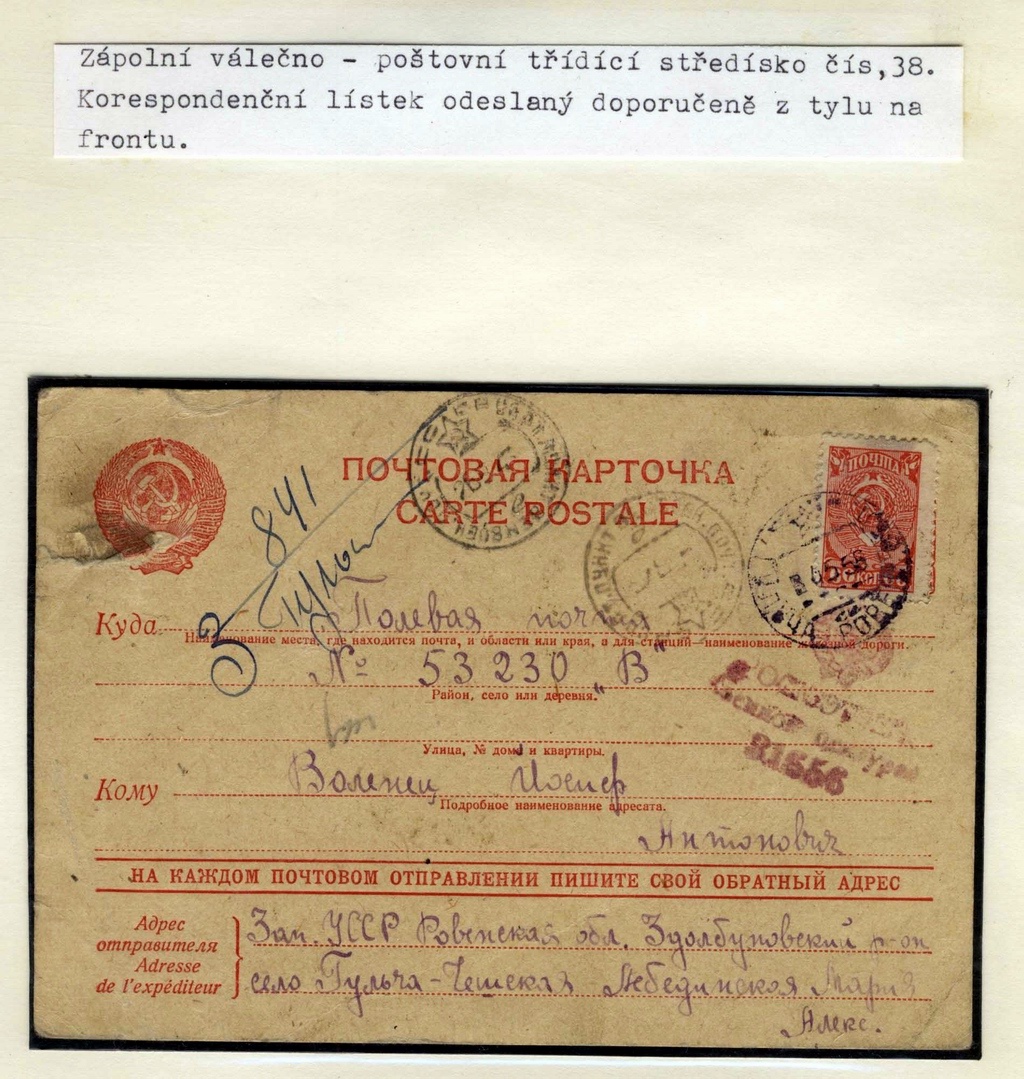 Zápolní válečno - poštovní třídící středísko čís,38.
Korespondenční lístek odeslaný doporučeně z tylu na
frontu.
ПОЧТОВАЯ КАРТОЧКА
CARTE POSTALE
З 841
ПОЧТА
Куда Полевая почта
Наименование места, где находится почта, и области или края, а для станций—наименование железной дороги.
№ 53230 „В"
Район, село или деревня.
Улица, № дома и квартиры.
Кому Воленец Иосиф
Подробное наименование адресата.
Антонович
31556
НА КАЖДОМ ПОЧТОВОМ ОТПРАВЛЕНИИ ПИШИТЕ СВОЙ ОБРАТНЫЙ АДРЕС
Адрес
отправителя
Adresse
de l'expéditeur
Зап. УССР Ровенская обл. Здолбуновский р-он
село Гульча-Чешская Лебединская Мария
Алекс.